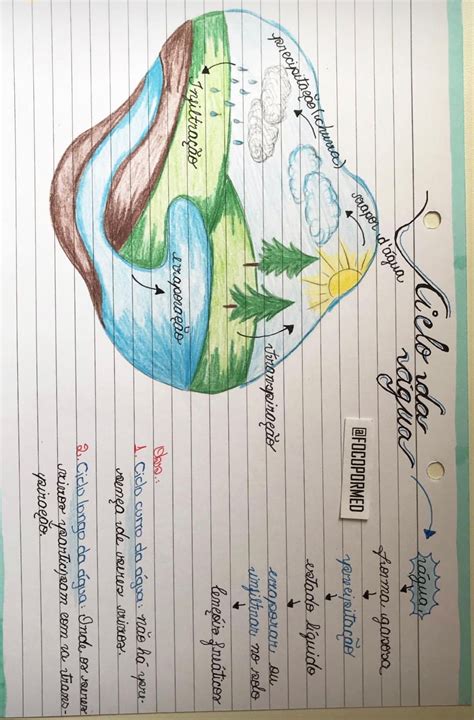 Ciclo da
água
@FOCOPORMED
água
forma gasosa
precipitação
estado líquido
evaporar ou
infiltrar no solo
lençóis freáticos
vapor d'água
precipitação (chuva)
Infiltração
evaporação
transpiração
Obs.:
1. Ciclo curto da água: não há pre-
sença de seres vivos.
2. Ciclo longo da água: Onde os seres
vivos participam com a trans-
piração.